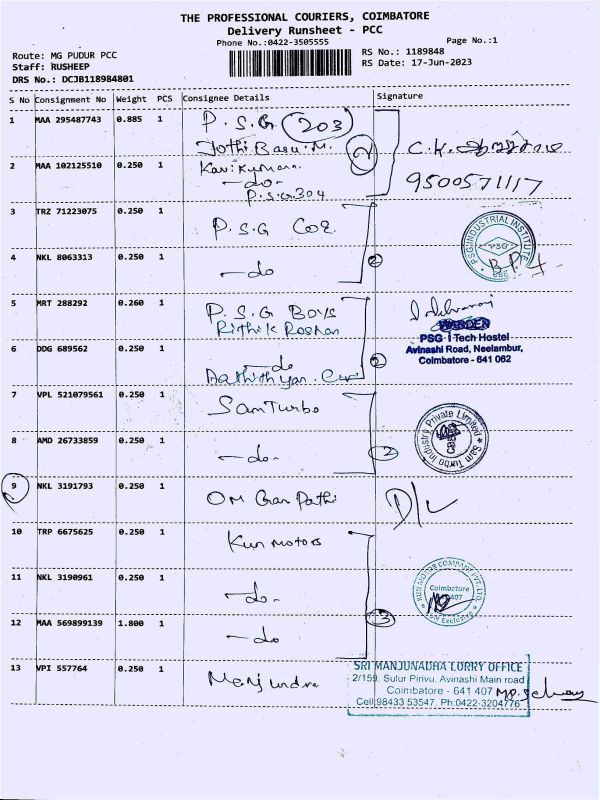 THE PROFESSIONAL COURIERS, COIMBATORE
Delivery Runsheet - PCC
Phone No.:0422-3505555
Page No.:1
Route: MG PUDUR PCC
RS No.: 1189848
Staff: RUSHEEP
RS Date: 17-Jun-2023
DRS No.: DCJB118984801
S No Consignment No Weight PCS Consignee Details Signature
1 MAA 295487743 0.885 1 P.S.G (203)
Jothi Basu. M. C.K.
2 MAA 102125510 0.250 1 Kavikumar 2
-do- 9500571117
P.S.G 304
3 TRZ 71223075 0.250 1 P.S.G COE
PSG INDUSTRIAL INSTITUTE
PSG
4 NKL 8063313 0.250 1 -do 2
5 MRT 288292 0.260 1 P.S.G Boys
Rithik Roshan WARDEN
PSG I Tech Hostel
6 DDG 689562 0.250 1 -do 2 Avinashi Road, Neelambur,
Coimbatore - 641 062
7 VPL 521079561 0.250 1 Sam Turbo
Sam Turbo Industry Private Limited
CBE
8 AMD 26733859 0.250 1 -do- 2
9 NKL 3191793 0.250 1 OM Gan Pathi D/L
10 TRP 6675625 0.250 1 Kun Motors
KUN MOTOR COMPANY PVT. LTD.
11 NKL 3190961 0.250 1 -do- Coimbatore
407
12 MAA 569899139 1.800 1 -do 3
13 VPI 557764 0.250 1 Manjundra
SRI MANJUNADHA LORRY OFFICE
2/159, Sulur Pirivu, Avinashi Main road
Coimbatore - 641 407
Cell:98433 53547, Ph:0422-3204776